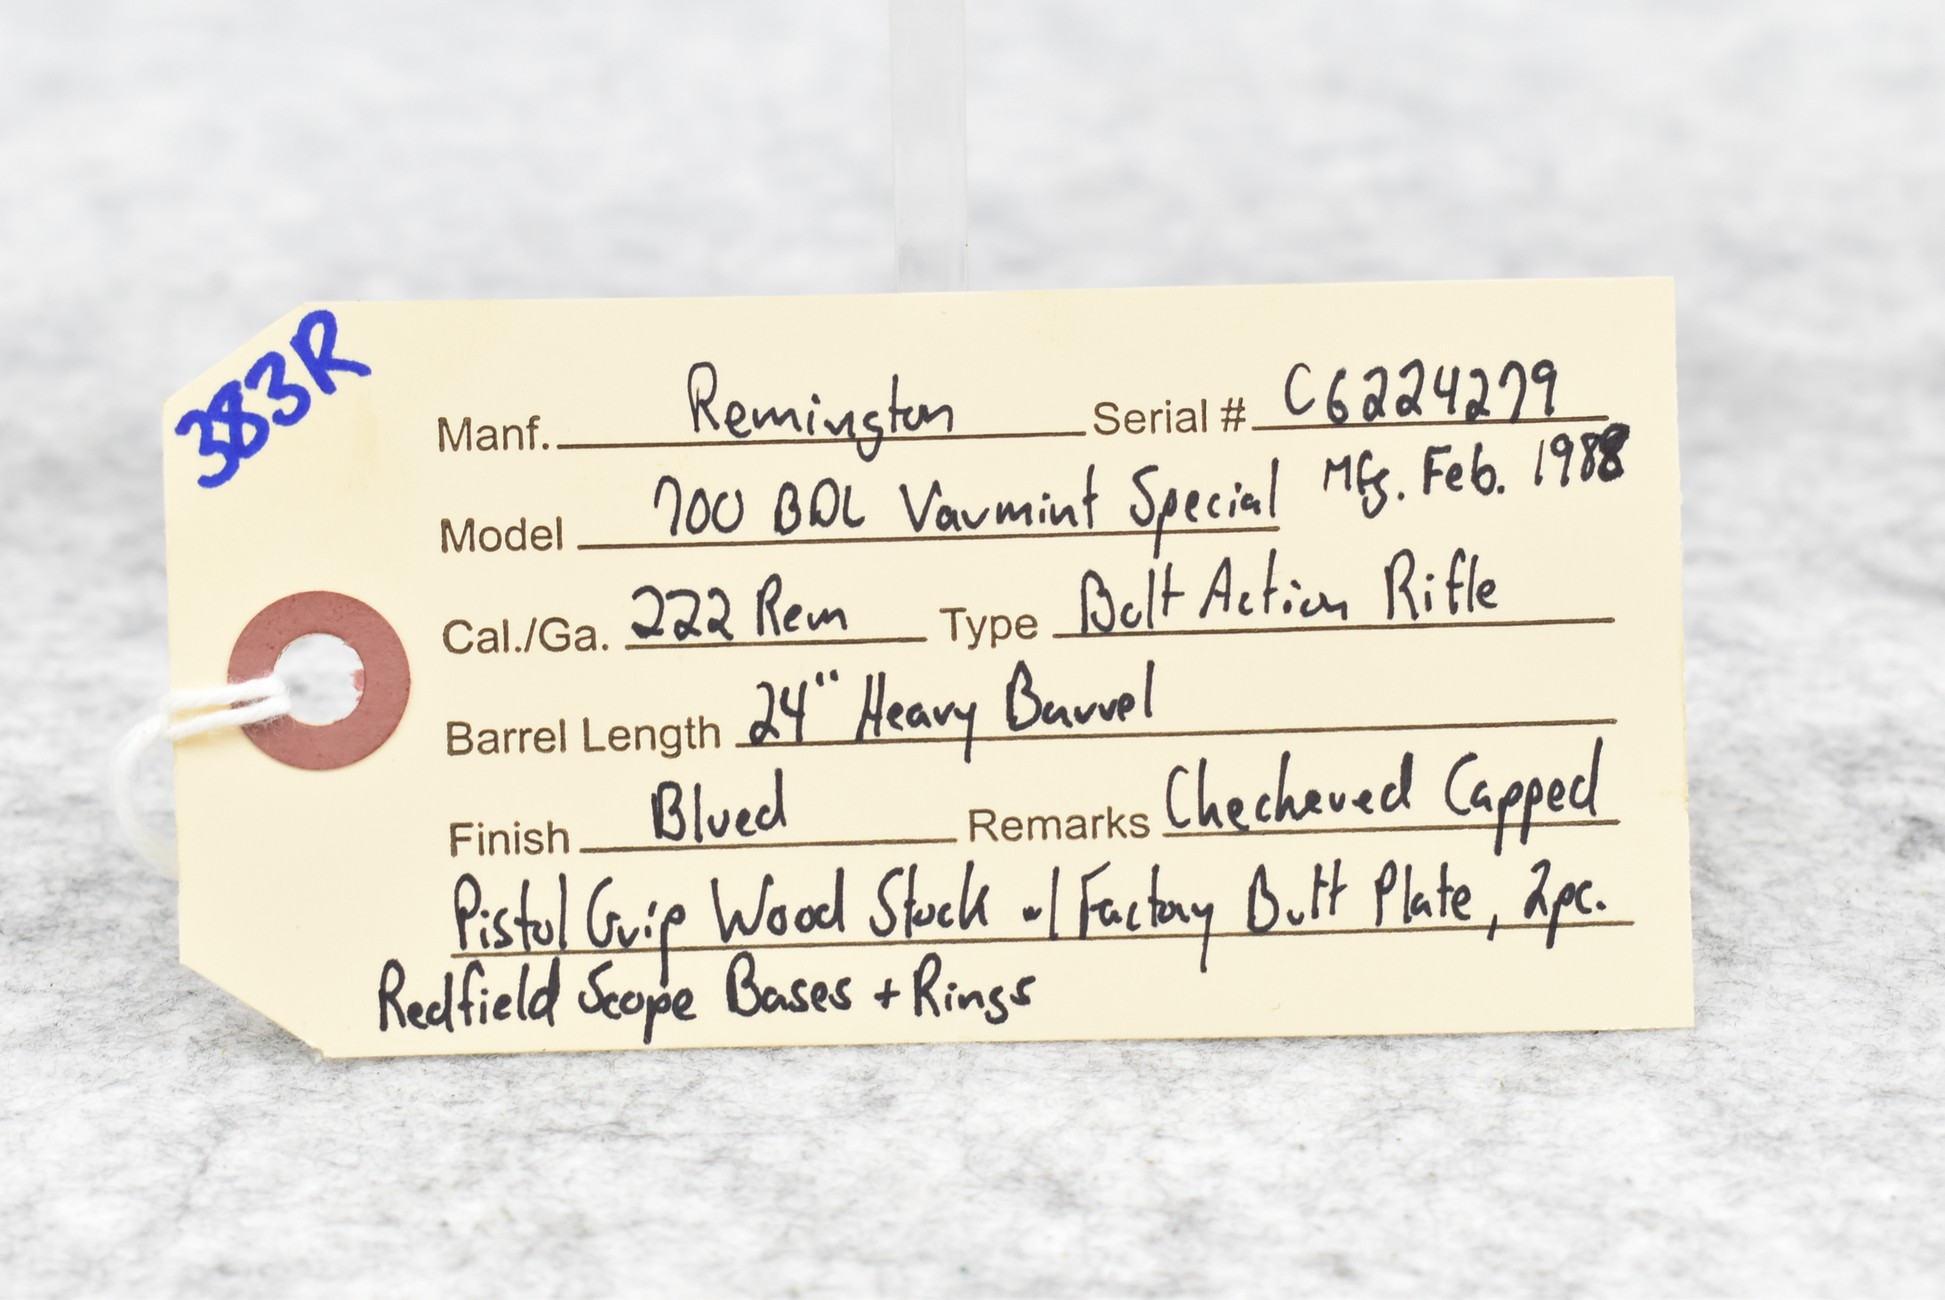 383R
Manf. Remington Serial # C6224279
Mfg. Feb. 1988
Model 700 BDL Varmint Special
Cal./Ga. 222 Rem Type Bolt Action Rifle
Barrel Length 24" Heavy Barrel
Finish Blued Remarks Checkered Capped
Pistol Grip Wood Stock w/ Factory Butt Plate, 2pc.
Redfield Scope Bases + Rings